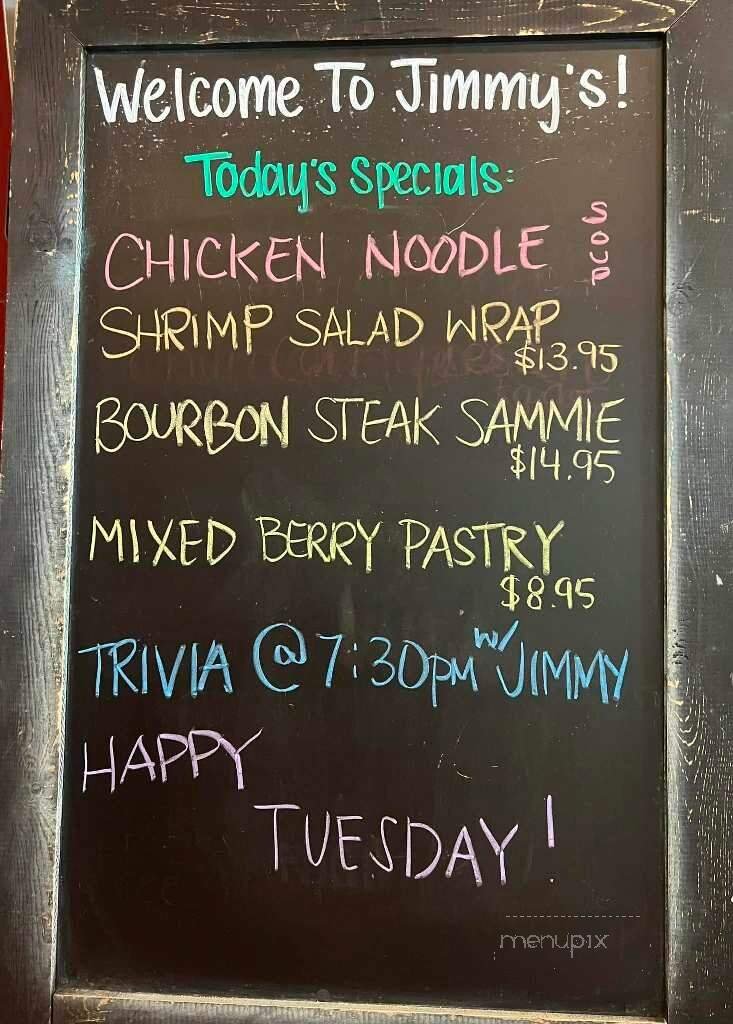 Welcome To Jimmy's!
Today's Specials:
CHICKEN NOODLE SOUP
SHRIMP SALAD WRAP
$13.95
BOURBON STEAK SAMMIE
$14.95
MIXED BERRY PASTRY
$8.95
TRIVIA @ 7:30PM w/ JIMMY
HAPPY
TUESDAY!
menupix